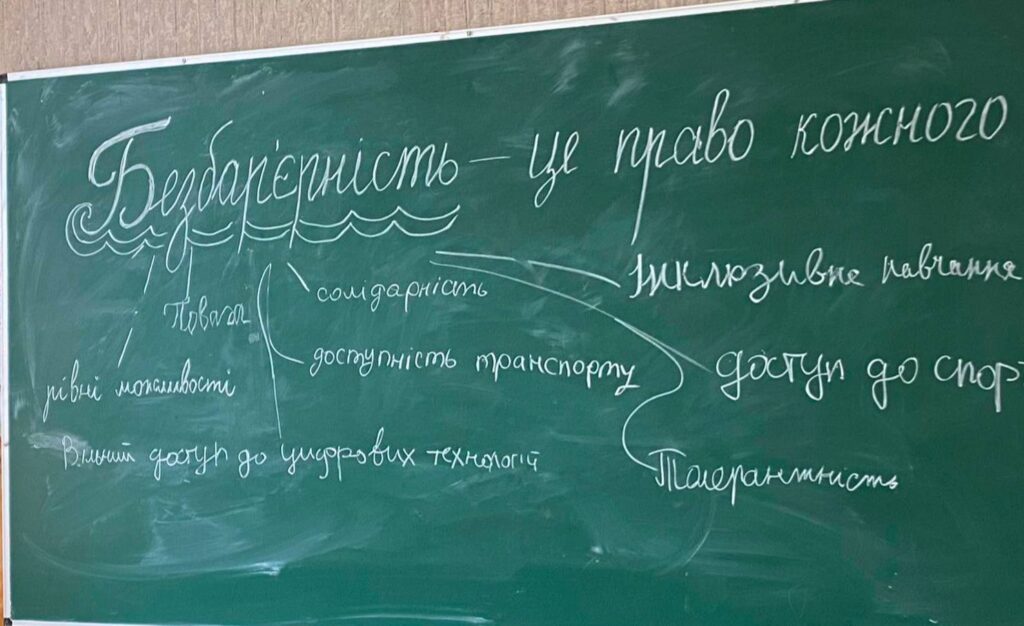 Безбар'єрність – це право кожного
Інклюзивне навчання
солідарність
Повага
доступність транспорту
доступ до спор
рівні можливості
Вільний доступ до цифрових технологій
Толерантність